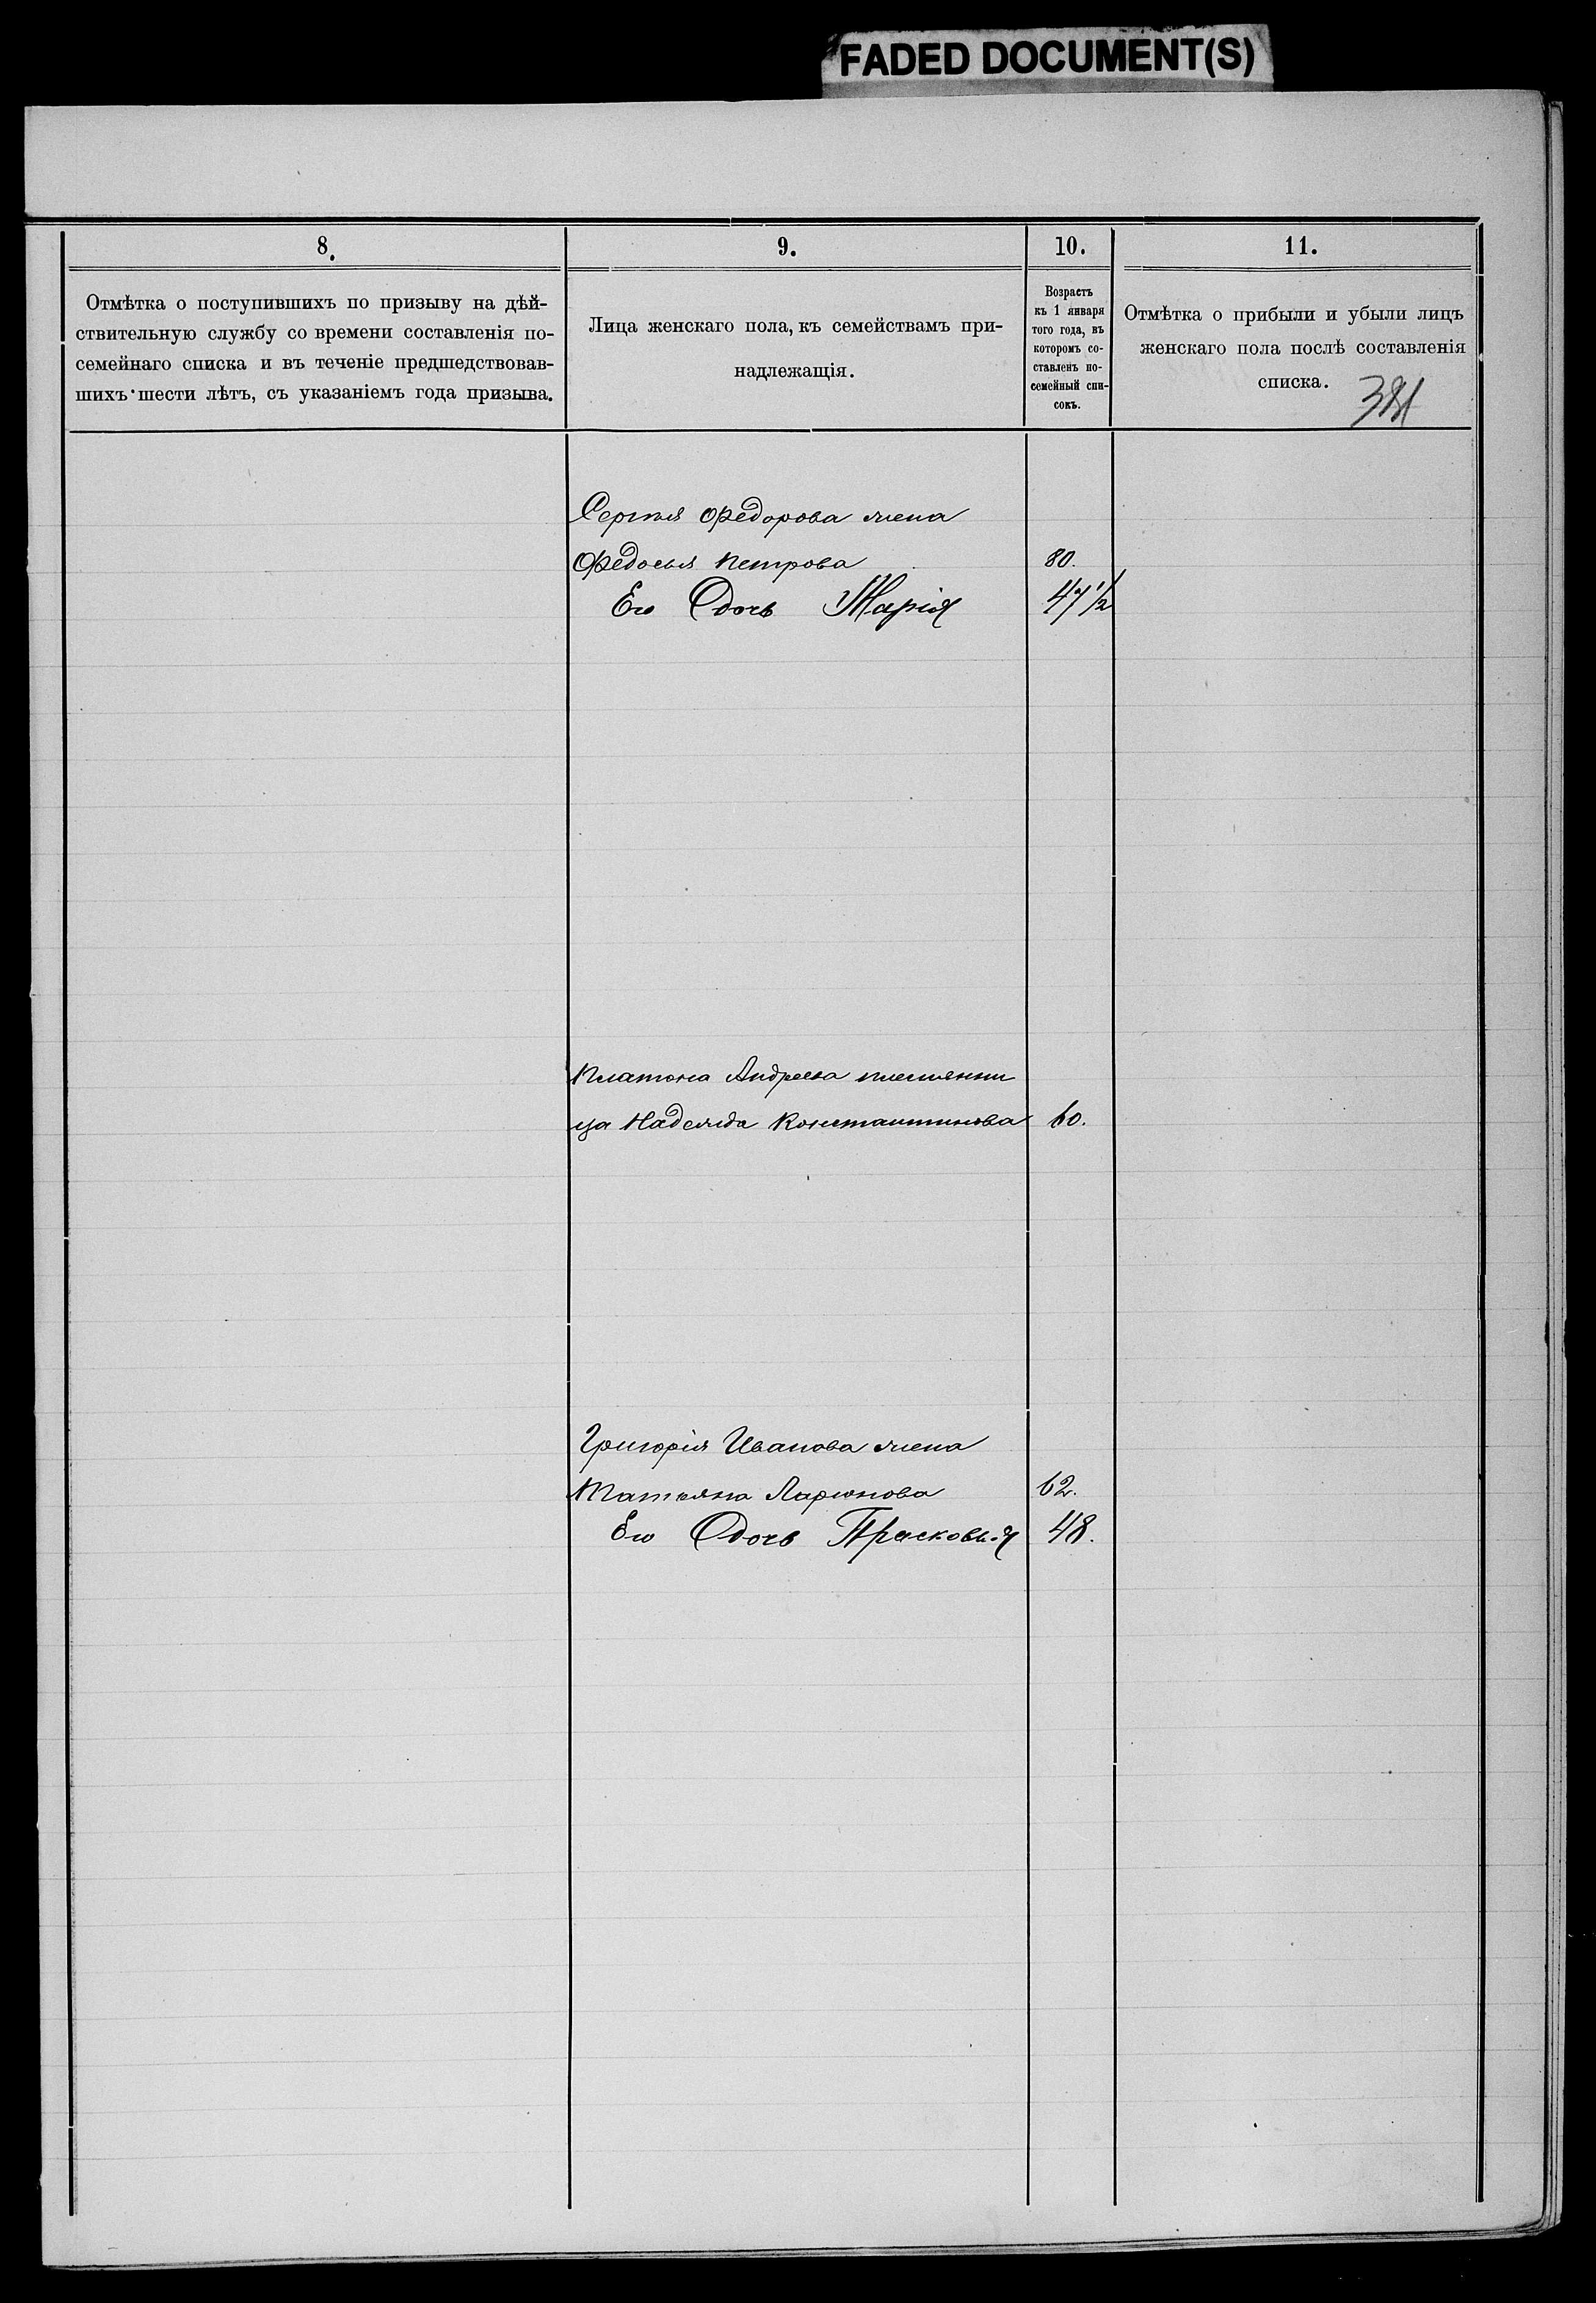 FADED DOCUMENT(S)
8. 9. 10. 11.
Отмѣтка о поступившихъ по призыву на дѣй-
ствительную службу со времени составленія по-
семейнаго списка и въ теченіе предшедствовав-
шихъ шести лѣтъ, съ указаніемъ года призыва.
Лица женскаго пола, къ семействамъ при-
надлежащія.
Возрастъ
къ 1 января
того года, въ
которомъ со-
ставленъ по-
семейный спи-
сокъ.
Отмѣтка о прибыли и убыли лицъ
женскаго пола послѣ составленія
списка.
381
Сергѣя Ѳедорова жена
Ѳедосья Петрова 80.
Его Дочь Марія 47 1/2
Платона Андреева племянни
ца Надежда Константинова 60.
Григорія Иванова жена
Татьяна Ларіонова 62.
Его Дочь Прасковья 48.